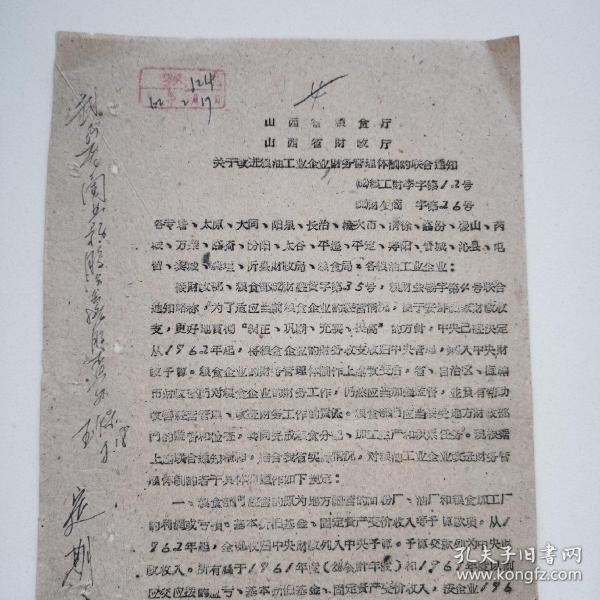 124
62 2 17
山西省粮食厅
山西省财政厅
关于改进粮油工业企业财务管理体制的联合通知
粮工财李字第12号
字第26号
各专署、太原、大同、阳泉、长治、榆次市、清徐、襄汾、稷山、芮
城、万荣、临猗、汾阳、太谷、平遥、平定、寿阳、晋城、沁县、屯
留、沂县财政局、粮食局。各粮油工业企业:
接财政部、粮食部财经贾字第35号,粮财会杨字第4号联合
通知略称,为了适应当前粮食企业的经营情况,便于安排国家财政收
支,更好地贯彻"调正、巩固、充实、提高"的方针,中央已经决定
从1962年起,将粮食企业的财务收支收归中央管理,纳入中央财
政予算。粮食企业的财务管理体制作上述改变后,省、自治区、直辖
市财政部门对粮食企业的财务工作,仍然应当加强监督,并负有帮助
改善经营管理、改进财务工作的责任。粮食部门应当接受地方财政部
门的监督和检查,共同完成粮食分配、加工生产和积累任务。现根据
上述联合通知精神,结合我省实际情况,对粮油工业企业改进财务管
理体制的若干具体问题作如下规定:
一、粮食部门经营的原为地方经营的面粉厂、油厂和粮食加工厂
的利润或亏损。基本折旧基金、固定资产变价收入等予算款项。从1
962年起,全部收归中央财政列入中央予算。予算交款列为中央财
政收入。所有属于1961年度(粮会财年度)和1961年度以前
应交应拨的亏、基本折旧基金、固定资产变价收入,按企业196
定期
孔夫子旧书网
www.kongfz.com